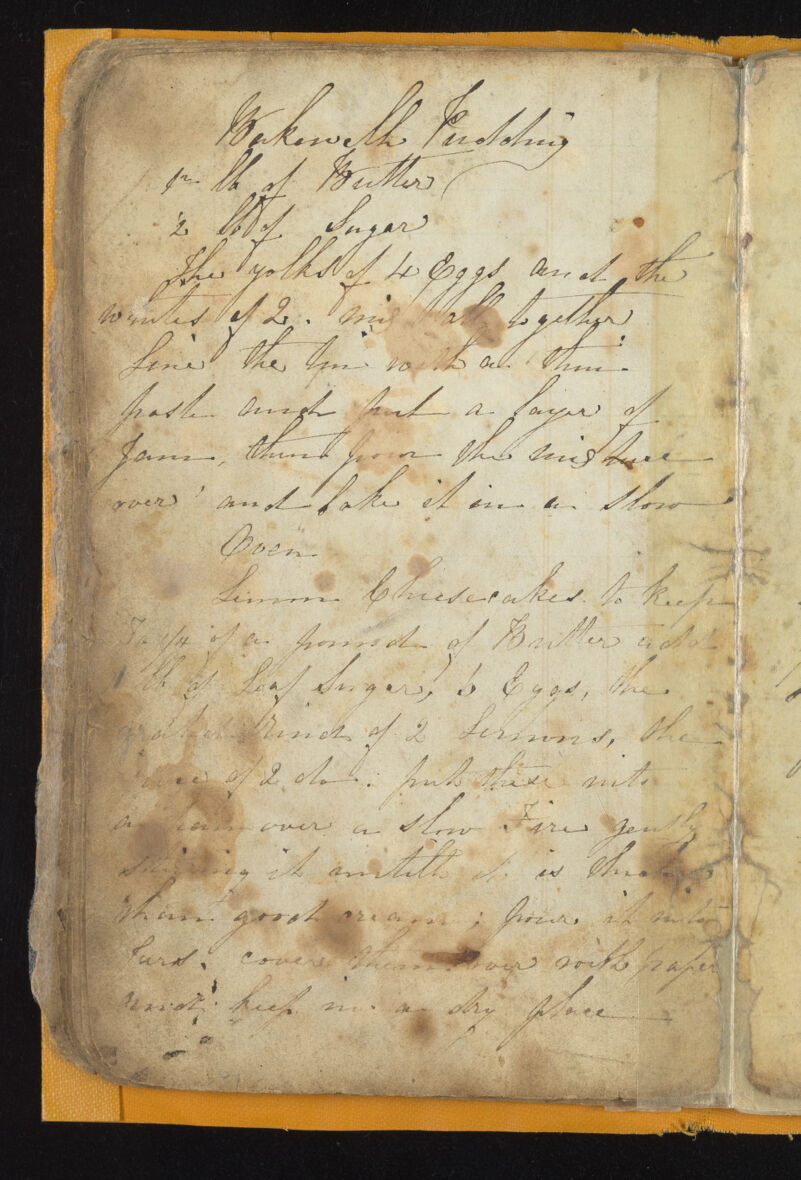 Bakewell Pudding
lb of Butter
lb of Sugar
The yolks of 4 Eggs and the
whites of 2. mix all together
Line the tin with a thin
paste and put a layer of
Jam, then pour the mixture
over and bake it in a slow
Oven
Lemon Cheesecakes to keep
To 1/4 of a pound of Butter add
1 lb of Loaf Sugar, 6 Eggs, the
grated rind of 2 Lemons, the
juice of 2 do. put these into
a pan over a slow Fire gently
stirring it untill it is thick
than good cream; pour it into
Jars. cover them over with paper
and keep in a dry place